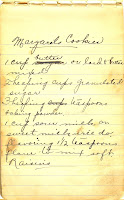 Margaret's Cookies
1 cup butter or lard & butter
mixed
2 heaping cups granulated
sugar
2 heaping teaspoons
baking powder
1 cup sour milk or
sweet milk will do
flavoring 1/2 teaspoons
flour to mix soft
Raisins